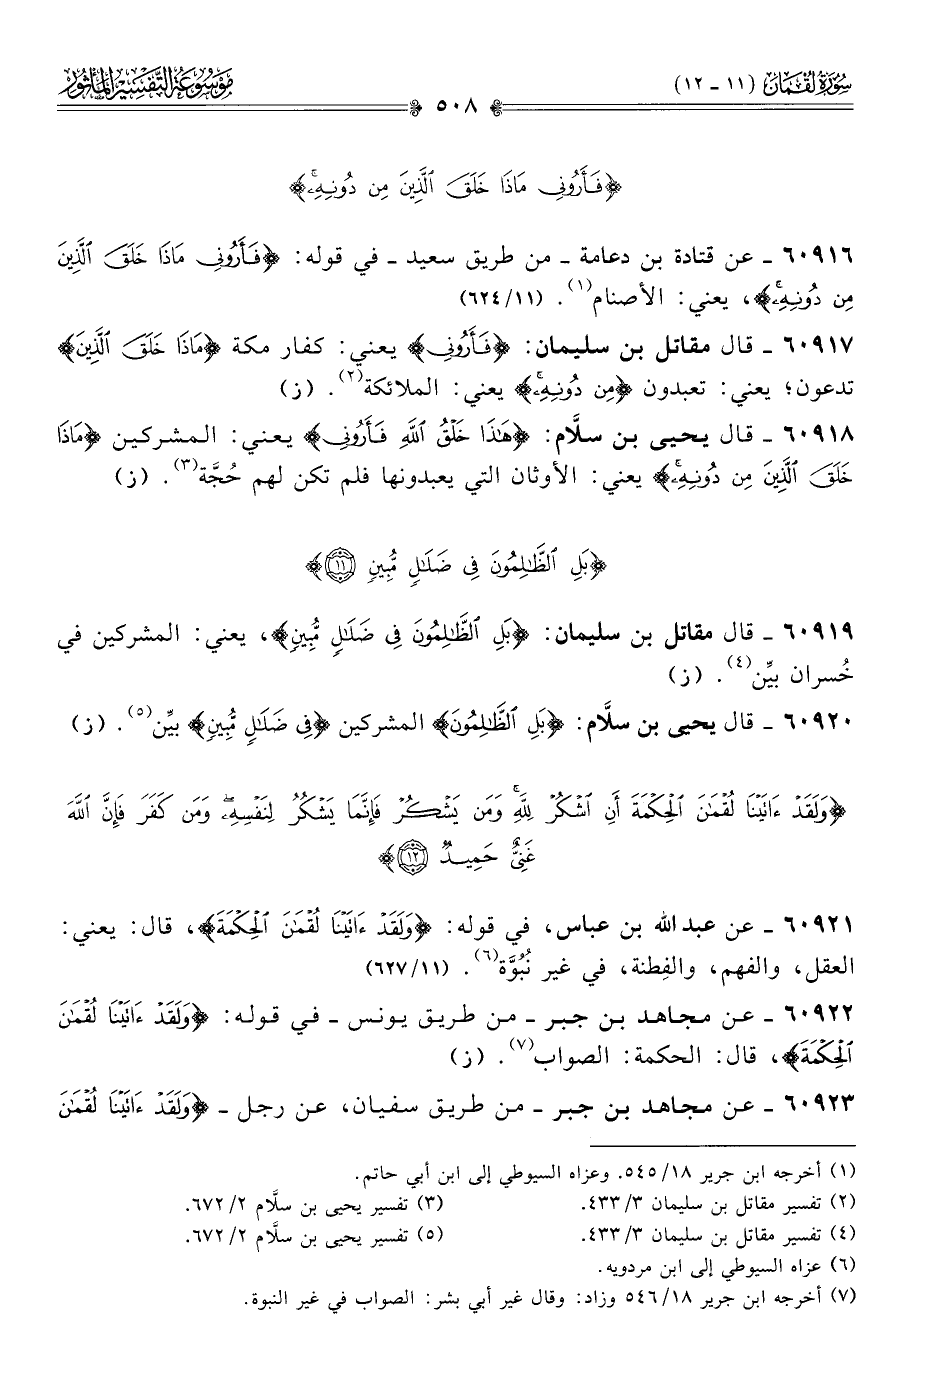 سُورَةُ لُقْمَان (١١ - ١٢)
مَوْسُوعَة التَّفْسِير المَأْثُور
٥٠٨
﴿فَأَرُونِى مَاذَا خَلَقَ ٱلَّذِينَ مِن دُونِهِۦۚ﴾
٦٠٩١٦ - عن قتادة بن دعامة - من طريق سعيد - في قوله: ﴿فَأَرُونِى مَاذَا خَلَقَ ٱلَّذِينَ
مِن دُونِهِۦۚ﴾، يعني: الأصنام(١). (٦٢٤/١١)
٦٠٩١٧ - قال مقاتل بن سليمان: ﴿فَأَرُونِى﴾ يعني: كفار مكة ﴿مَاذَا خَلَقَ ٱلَّذِينَ﴾
تدعون؛ يعني: تعبدون ﴿مِن دُونِهِۦۚ﴾ يعني: الملائكة(٢). (ز)
٦٠٩١٨ - قال يحيى بن سلَّام: ﴿هَٰذَا خَلْقُ ٱللَّهِ فَأَرُونِى﴾ يعني: المشركين ﴿مَاذَا
خَلَقَ ٱلَّذِينَ مِن دُونِهِۦۚ﴾ يعني: الأوثان التي يعبدونها فلم تكن لهم حُجَّة(٣). (ز)
﴿بَلِ ٱلظَّٰلِمُونَ فِى ضَلَٰلٍ مُّبِينٍ ١١﴾
٦٠٩١٩ - قال مقاتل بن سليمان: ﴿بَلِ ٱلظَّٰلِمُونَ فِى ضَلَٰلٍ مُّبِينٍ﴾، يعني: المشركين في
خُسران بيِّن(٤). (ز)
٦٠٩٢٠ - قال يحيى بن سلَّام: ﴿بَلِ ٱلظَّٰلِمُونَ﴾ المشركين ﴿فِى ضَلَٰلٍ مُّبِينٍ﴾ بيِّن(٥). (ز)
﴿وَلَقَدْ ءَاتَيْنَا لُقْمَٰنَ ٱلْحِكْمَةَ أَنِ ٱشْكُرْ لِلَّهِۚ وَمَن يَشْكُرْ فَإِنَّمَا يَشْكُرُ لِنَفْسِهِۦۖ وَمَن كَفَرَ فَإِنَّ ٱللَّهَ
غَنِىٌّ حَمِيدٌ ١٢﴾
٦٠٩٢١ - عن عبد الله بن عباس، في قوله: ﴿وَلَقَدْ ءَاتَيْنَا لُقْمَٰنَ ٱلْحِكْمَةَ﴾، قال: يعني:
العقل، والفهم، والفِطنة، في غير نُبُوَّة(٦). (٦٢٧/١١)
٦٠٩٢٢ - عن مجاهد بن جبر - من طريق يونس - في قوله: ﴿وَلَقَدْ ءَاتَيْنَا لُقْمَٰنَ
ٱلْحِكْمَةَ﴾، قال: الحكمة: الصواب(٧). (ز)
٦٠٩٢٣ - عن مجاهد بن جبر - من طريق سفيان، عن رجل - ﴿وَلَقَدْ ءَاتَيْنَا لُقْمَٰنَ
(١) أخرجه ابن جرير ١٨/ ٥٤٥. وعزاه السيوطي إلى ابن أبي حاتم.
(٢) تفسير مقاتل بن سليمان ٣/ ٤٣٣.
(٣) تفسير يحيى بن سلَّام ٢/ ٦٧٢.
(٤) تفسير مقاتل بن سليمان ٣/ ٤٣٣.
(٥) تفسير يحيى بن سلَّام ٢/ ٦٧٢.
(٦) عزاه السيوطي إلى ابن مردويه.
(٧) أخرجه ابن جرير ١٨/ ٥٤٦ وزاد: وقال غير أبي بشر: الصواب في غير النبوة.